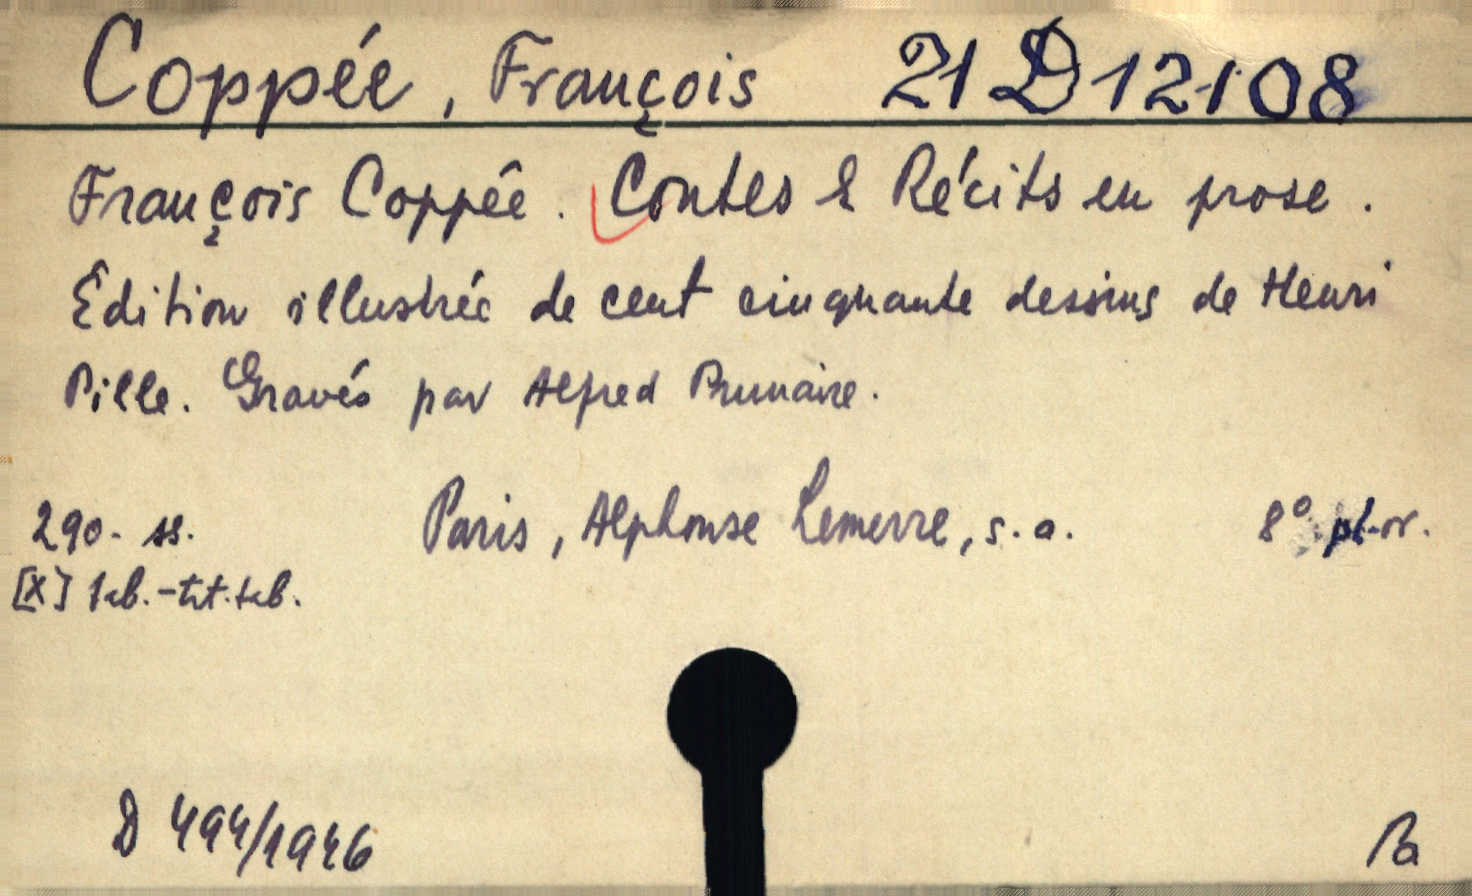 Coppée, François 21 D 12108
François Coppée. Contes & Récits en prose.
Édition illustrée de cent cinquante dessins de Henri
Pille. Gravés par Alfred Prunaire.
290. ss. Paris, Alphonse Lemerre, s.a. 8° pl-or.
[X] tab.-tit.tab.
D 494/1946